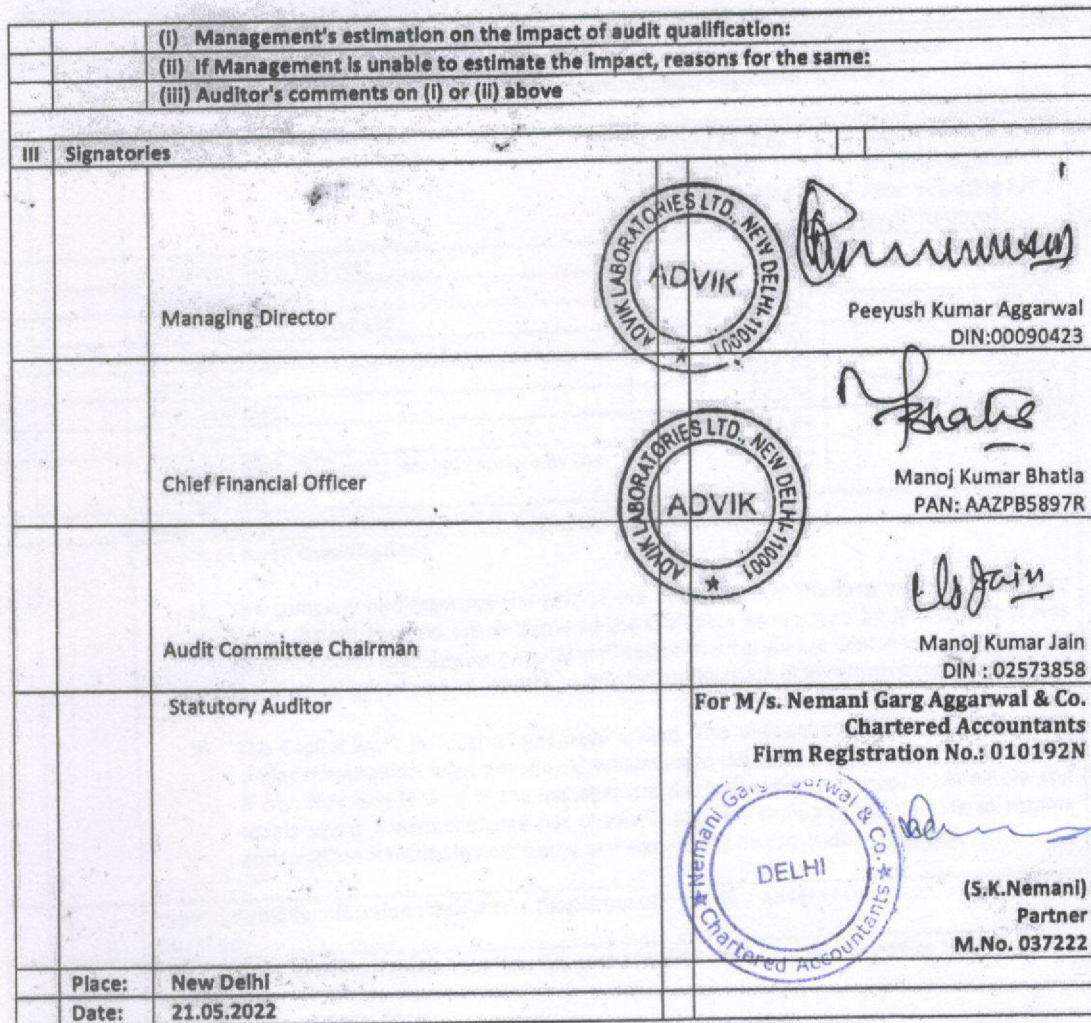 (i) Management's estimation on the impact of audit qualification:
(ii) If Management is unable to estimate the impact, reasons for the same:
(iii) Auditor's comments on (i) or (ii) above
III Signatories
ADVIK LABORATORIES LTD., NEW DELHI-110001
ADVIK
Managing Director
Peeyush Kumar Aggarwal
DIN:00090423
ADVIK LABORATORIES LTD., NEW DELHI-110001
ADVIK
Chief Financial Officer
Manoj Kumar Bhatia
PAN: AAZPB5897R
Audit Committee Chairman
Manoj Kumar Jain
DIN : 02573858
Statutory Auditor
For M/s. Nemani Garg Aggarwal & Co.
Chartered Accountants
Firm Registration No.: 010192N
Nemani Garg Aggarwal & Co.
DELHI
Chartered Accountants
(S.K.Nemani)
Partner
M.No. 037222
Place: New Delhi
Date: 21.05.2022